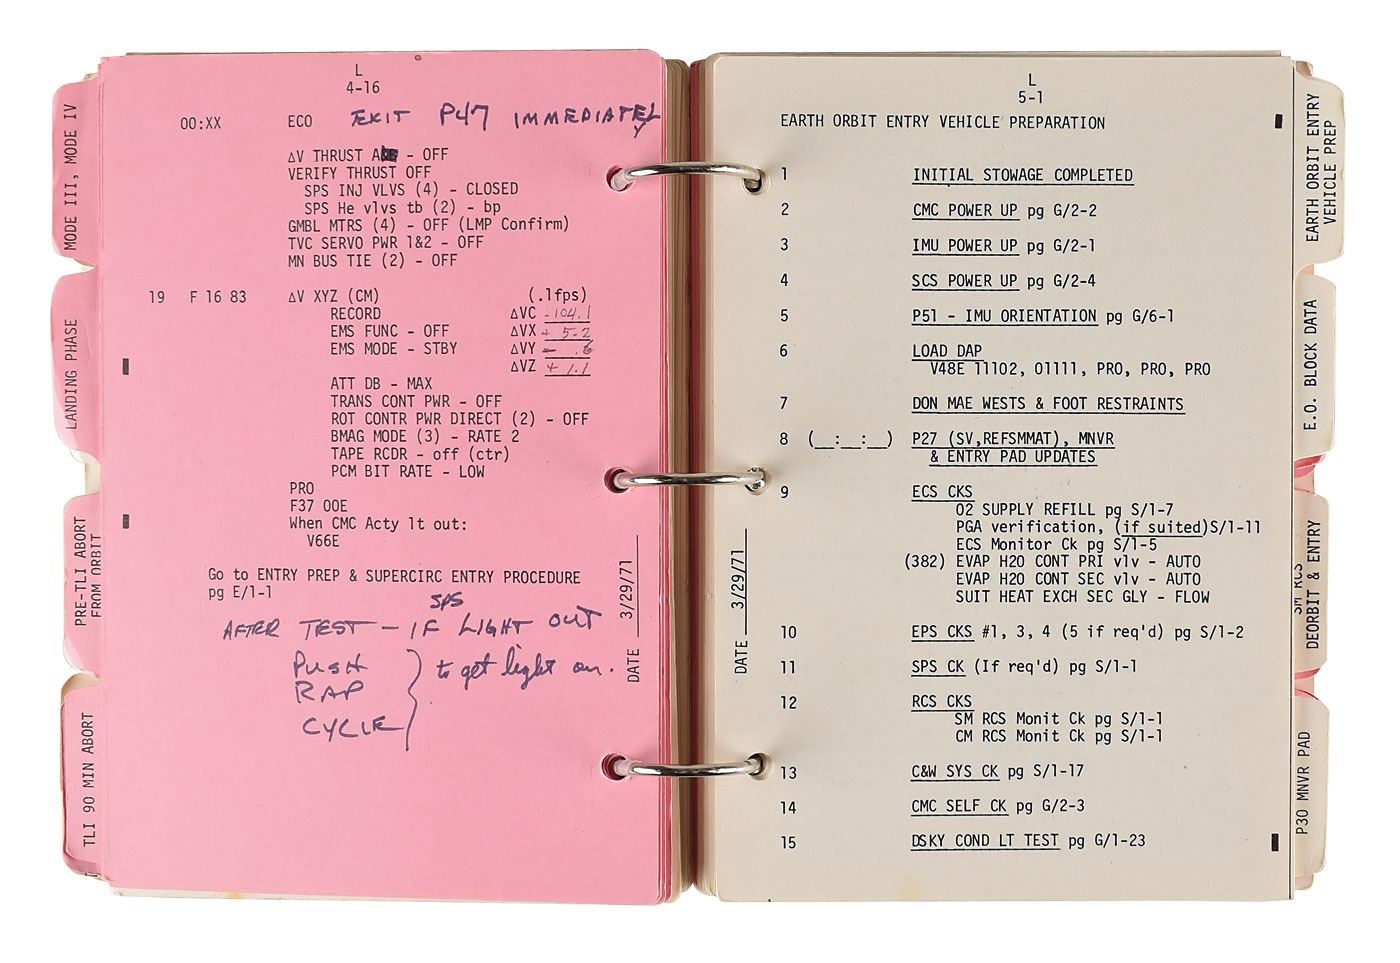 MODE III, MODE IV
LANDING PHASE
PRE-TLI ABORT
FROM ORBIT
TLI 90 MIN ABORT
L
4-16
00:XX ECO EXIT P47 IMMEDIATELY
ΔV THRUST - OFF
VERIFY THRUST OFF
SPS INJ VLVS (4) - CLOSED
SPS He vlvs tb (2) - bp
GMBL MTRS (4) - OFF (LMP Confirm)
TVC SERVO PWR 1&2 - OFF
MN BUS TIE (2) - OFF
19 F 16 83 ΔV XYZ (CM) (.1fps)
RECORD ΔVC -104.1
EMS FUNC - OFF ΔVX + 5.2
EMS MODE - STBY ΔVY - .6
ΔVZ + 1.1
ATT DB - MAX
TRANS CONT PWR - OFF
ROT CONTR PWR DIRECT (2) - OFF
BMAG MODE (3) - RATE 2
TAPE RCDR - off (ctr)
PCM BIT RATE - LOW
PRO
F37 00E
When CMC Acty lt out:
V66E
Go to ENTRY PREP & SUPERCIRC ENTRY PROCEDURE
pg E/1-1
SPS
AFTER TEST - IF LIGHT OUT
PUSH
RAP
CYCLE
to get light on.
DATE 3/29/71
L
5-1
EARTH ORBIT ENTRY VEHICLE PREPARATION
1 INITIAL STOWAGE COMPLETED
2 CMC POWER UP pg G/2-2
3 IMU POWER UP pg G/2-1
4 SCS POWER UP pg G/2-4
5 P51 - IMU ORIENTATION pg G/6-1
6 LOAD DAP
V48E 11102, 01111, PRO, PRO, PRO
7 DON MAE WESTS & FOOT RESTRAINTS
8 (__:__:__) P27 (SV,REFSMMAT), MNVR
& ENTRY PAD UPDATES
9 ECS CKS
O2 SUPPLY REFILL pg S/1-7
PGA verification, (if suited)S/1-11
ECS Monitor Ck pg S/1-5
(382) EVAP H2O CONT PRI vlv - AUTO
EVAP H2O CONT SEC vlv - AUTO
SUIT HEAT EXCH SEC GLY - FLOW
10 EPS CKS #1, 3, 4 (5 if req'd) pg S/1-2
11 SPS CK (If req'd) pg S/1-1
12 RCS CKS
SM RCS Monit Ck pg S/1-1
CM RCS Monit Ck pg S/1-1
13 C&W SYS CK pg S/1-17
14 CMC SELF CK pg G/2-3
15 DSKY COND LT TEST pg G/1-23
DATE 3/29/71
EARTH ORBIT ENTRY
VEHICLE PREP
E.O. BLOCK DATA
SM RCS
DEORBIT & ENTRY
P30 MNVR PAD